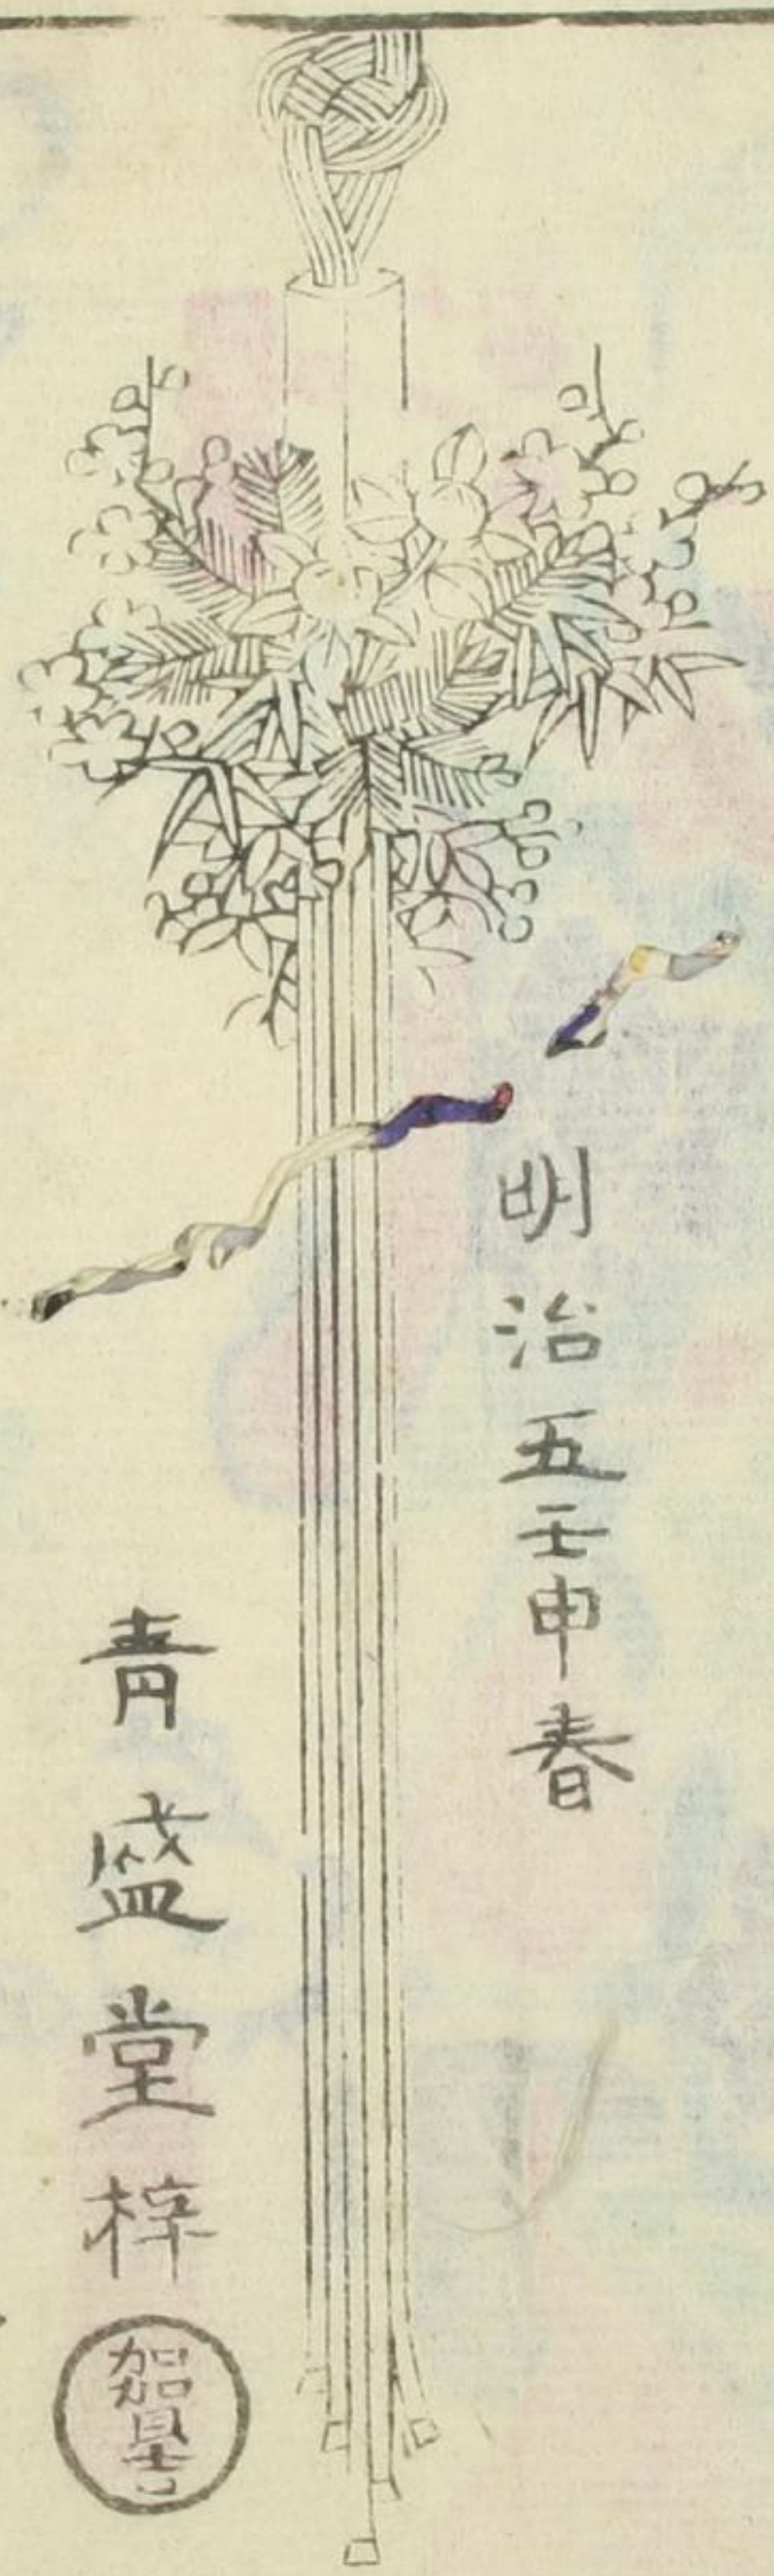 明治五壬申春
青盛堂梓
加賀吉